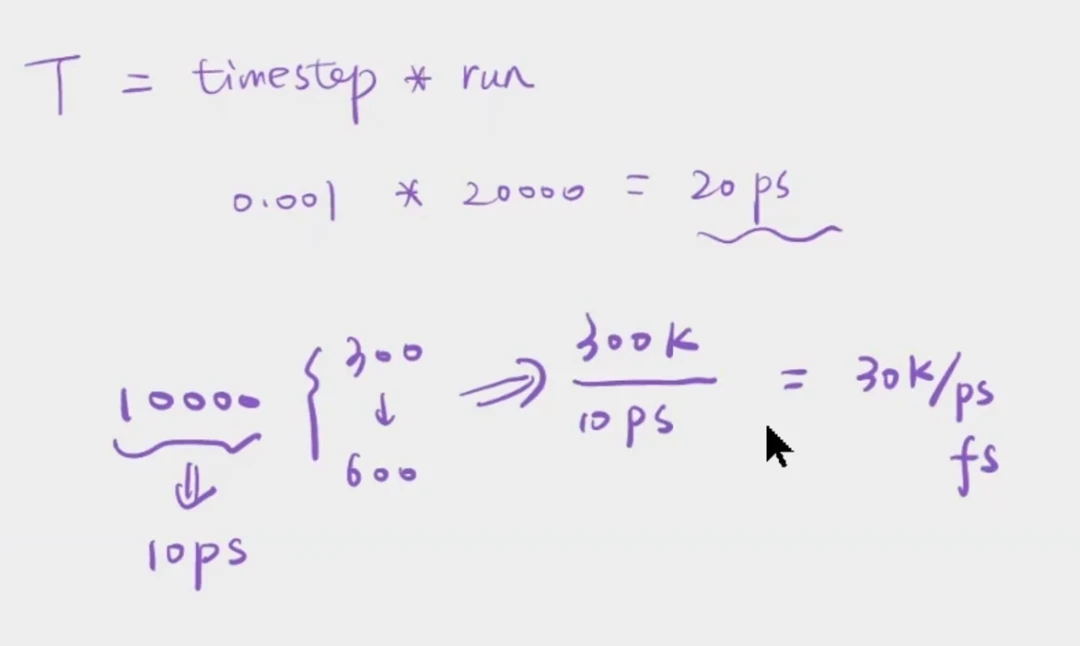 T = timestep * run
0.001 * 20000 = 20 ps
10000 { 300 ↓ 600 ⇒ 300K / 10 ps = 30K/ps
fs
⇓
10ps